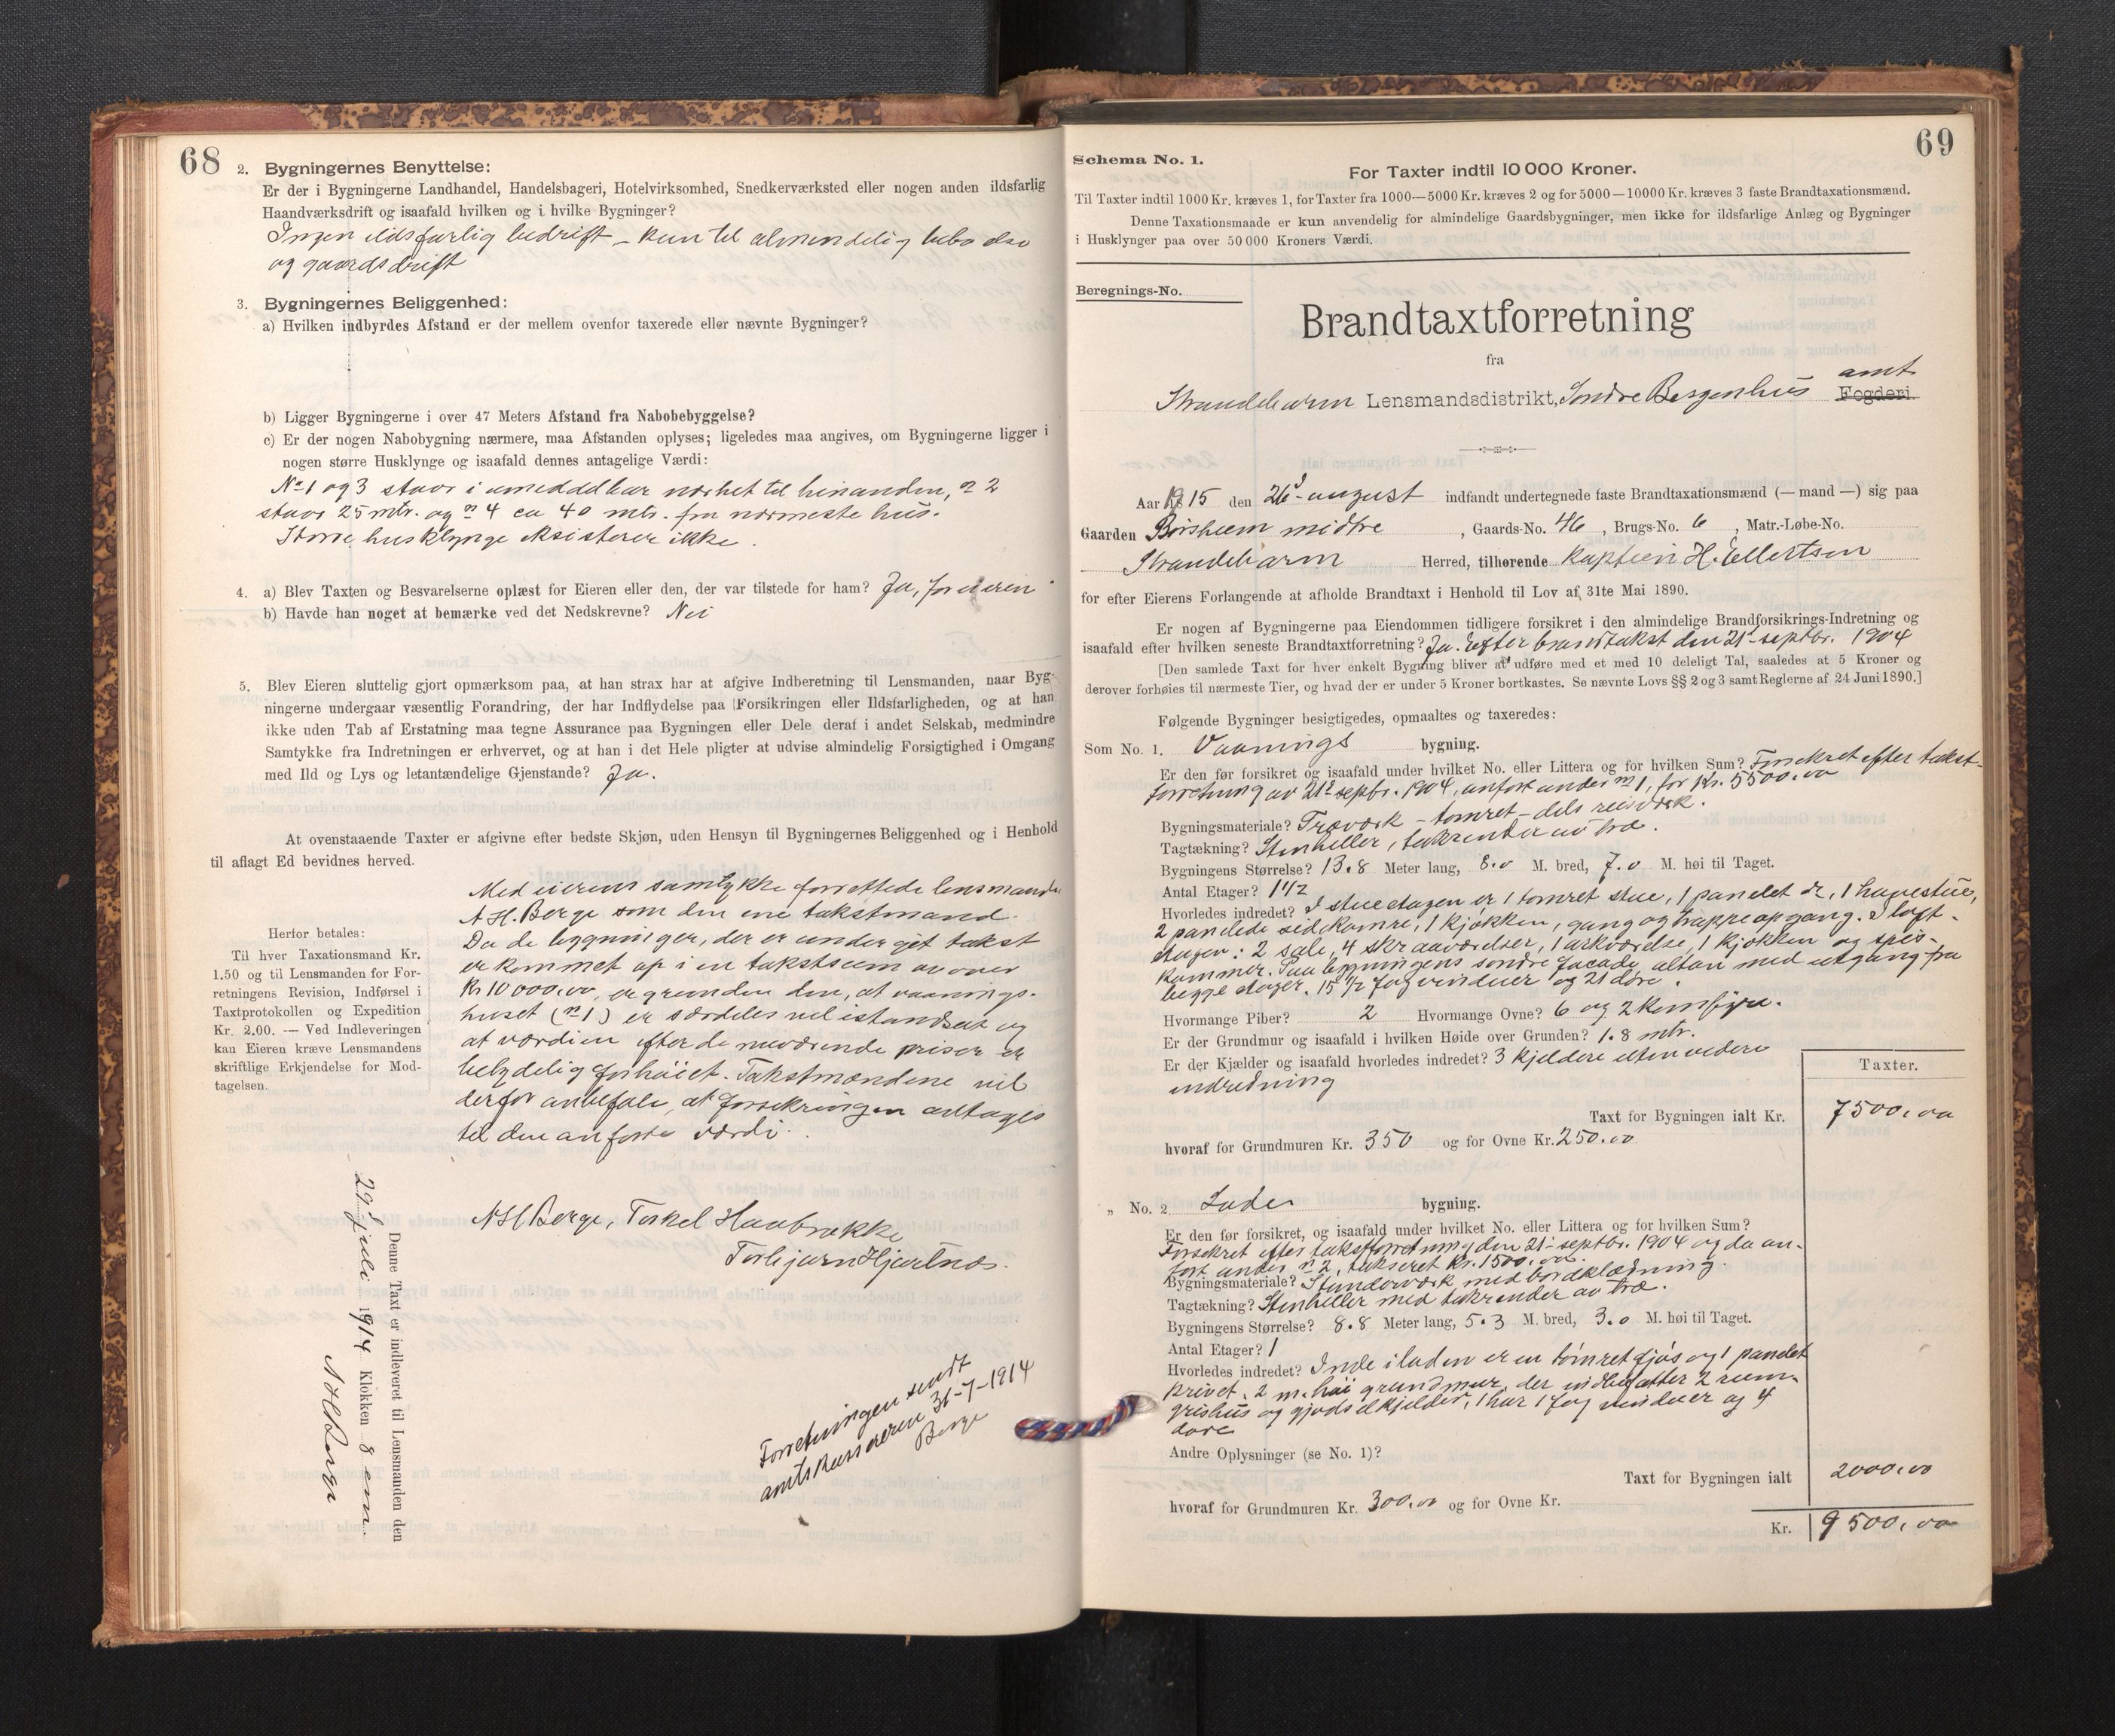 68
2. Bygningernes Benyttelse:
Er der i Bygningerne Landhandel, Handelsbageri, Hotelvirksomhed, Snedkerværksted eller nogen anden ildsfarlig
Haandværksdrift og isaafald hvilken og i hvilke Bygninger?
Ingen ildsfarlig bedrift – kun til almindelig beboelse
og gaardsdrift
3. Bygningernes Beliggenhed:
a) Hvilken indbyrdes Afstand er der mellem ovenfor taxerede eller nævnte Bygninger?
b) Ligger Bygningerne i over 47 Meters Afstand fra Nabobebyggelse?
c) Er der nogen Nabobygning nærmere, maa Afstanden oplyses; ligeledes maa angives, om Bygningerne ligger i
nogen større Husklynge og isaafald dennes antagelige Værdi:
No 1 og 3 staar i umiddelbar nærhet til hinanden, n 2
staar 25 mtr. og n 4 ca 40 mtr. fra nærmeste hus.
Større husklynge eksisterer ikke.
4. a) Blev Taxten og Besvarelserne oplæst for Eieren eller den, der var tilstede for ham? Ja, for eieren
b) Havde han noget at bemærke ved det Nedskrevne? Nei
5. Blev Eieren sluttelig gjort opmærksom paa, at han strax har at afgive Indberetning til Lensmanden, naar Byg-
ningerne undergaar væsentlig Forandring, der har Indflydelse paa Forsikringen eller Ildsfarligheden, og at han
ikke uden Tab af Erstatning maa tegne Assurance paa Bygningen eller Dele deraf i andet Selskab, medmindre
Samtykke fra Indretningen er erhvervet, og at han i det Hele pligter at udvise almindelig Forsigtighed i Omgang
med Ild og Lys og letantændelige Gjenstande? Ja.
At ovenstaaende Taxter er afgivne efter bedste Skjøn, uden Hensyn til Bygningernes Beliggenhed og i Henhold
til aflagt Ed bevidnes herved.
Med eierens samtykke forrettede lensmand
N H. Berge som den ene takstmand.
Da de bygninger, der er undergit takst
er kommet op i en takstsum av over
Kr 10 000,00, er grunden den, at vaanings-
huset (n 1) er særdeles vel istandsat og
at værdien efter de nuværende priser er
betydelig forhøiet. Takstmændene vil
derfor anbefale, at forsikringen antages
til den anførte værdi.
Herfor betales:
Til hver Taxationsmand Kr.
1.50 og til Lensmanden for For-
retningens Revision, Indførsel i
Taxtprotokollen og Expedition
Kr. 2.00. — Ved Indleveringen
kan Eieren kræve Lensmandens
skriftlige Erkjendelse for Mod-
tagelsen.
N H Berge, Torkel Haabrække
Torbjørn Hjertnæs.
Denne Taxt er indleveret til Lensmanden den
29 juli 1914 Klokken 8 em.
N H Berge
Forretningen sendt
amtskassereren 31-7-1914
Berge
69
Schema No. 1.
For Taxter indtil 10 000 Kroner.
Til Taxter indtil 1000 Kr. kræves 1, for Taxter fra 1000—5000 Kr. kræves 2 og for 5000—10000 Kr. kræves 3 faste Brandtaxationsmænd.
Denne Taxationsmaade er kun anvendelig for almindelige Gaardsbygninger, men ikke for ildsfarlige Anlæg og Bygninger
i Husklynger paa over 50 000 Kroners Værdi.
Beregnings-No.
Brandtaxtforretning
fra
amt
Strandebarm Lensmandsdistrikt, Søndre Bergenhus Fogderi.
Aar 1915 den 26 august indfandt undertegnede faste Brandtaxationsmænd (— mand —) sig paa
Gaarden Børsheim midtre, Gaards-No. 46, Brugs-No. 6, Matr.-Løbe-No.
Strandebarm Herred, tilhørende kaptein H. Ellertsen
for efter Eierens Forlangende at afholde Brandtaxt i Henhold til Lov af 31te Mai 1890.
Er nogen af Bygningerne paa Eiendommen tidligere forsikret i den almindelige Brandforsikrings-Indretning og
isaafald efter hvilken seneste Brandtaxtforretning? Ja. Efter brandtakst den 21 septbr. 1904
[Den samlede Taxt for hver enkelt Bygning bliver at udføre med et med 10 deleligt Tal, saaledes at 5 Kroner og
derover forhøies til nærmeste Tier, og hvad der er under 5 Kroner bortkastes. Se nævnte Lovs §§ 2 og 3 samt Reglerne af 24 Juni 1890.]
Følgende Bygninger besigtigedes, opmaaltes og taxeredes:
Som No. 1. Vaanings bygning.
Er den før forsikret og isaafald under hvilket No. eller Littera og for hvilken Sum? Forsikret efter takst-
forretning av 21 septbr. 1904, anført under n 1, for Kr. 5500,00
Bygningsmateriale? Træværk – tømret – dels reisværk.
Tagtækning? Stenheller, takrender av træ.
Bygningens Størrelse? 13.8 Meter lang, 8.0 M. bred, 7.0 M. høi til Taget.
Antal Etager? 1 1/2
Hvorledes indredet? I stueetagen er 1 tømret stue, 1 panelet do, 1 havestue,
2 panelede sidekamre, 1 kjøkken, gang og trappeopgang. I loft-
etagen: 2 sale, 4 skraaværelser, 1 arkværelse, 1 kjøkken og spis-
kammer. Paa bygningens søndre facade, altan med utgang fra
begge etager. 15 1/2 fag vinduer og 21 døre.
Hvormange Piber? 2 Hvormange Ovne? 6 og 2 komfyre.
Er der Grundmur og isaafald i hvilken Høide over Grunden? 1.8 mtr.
Er der Kjælder og isaafald hvorledes indredet? 3 kjeldere uten videre
indredning
Taxter.
Taxt for Bygningen ialt Kr. 7500,00
hvoraf for Grundmuren Kr. 350 og for Ovne Kr. 250.00
„ No. 2 Lade bygning.
Er den før forsikret, og isaafald under hvilket No. eller Littera og for hvilken Sum?
Forsikret efter takstforretning den 21 septbr. 1904 og da an-
ført under n 2, takseret Kr. 1500,00.
Bygningsmateriale? Stenderværk med bordklædning.
Tagtækning? Stenheller med takrender av træ.
Bygningens Størrelse? 8.8 Meter lang, 5.3 M. bred, 3.0 M. høi til Taget.
Antal Etager? 1
Hvorledes indredet? Inde i laden er en tømret fjøs og 1 panelet
privet. 2 m. høi grundmur, der indbefatter 2 rum,
grishus og gjødselkjelder, 1 har 1 fag vinduer og 4
døre
Andre Oplysninger (se No. 1)?
Taxt for Bygningen ialt 2000,00
hvoraf for Grundmuren Kr. 300,00 og for Ovne Kr.
Kr. 9500,00